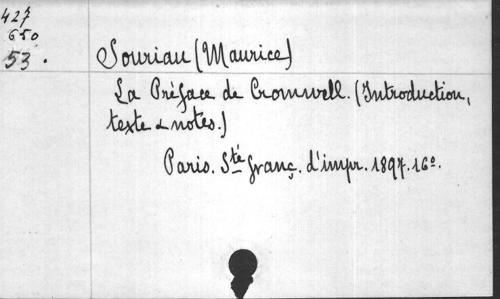 427
650
53.
Souriau (Maurice)
La Préface de Cromwell. (Introduction,
texte & notes.)
Paris. Sté franç. d'impr. 1897. 16º.